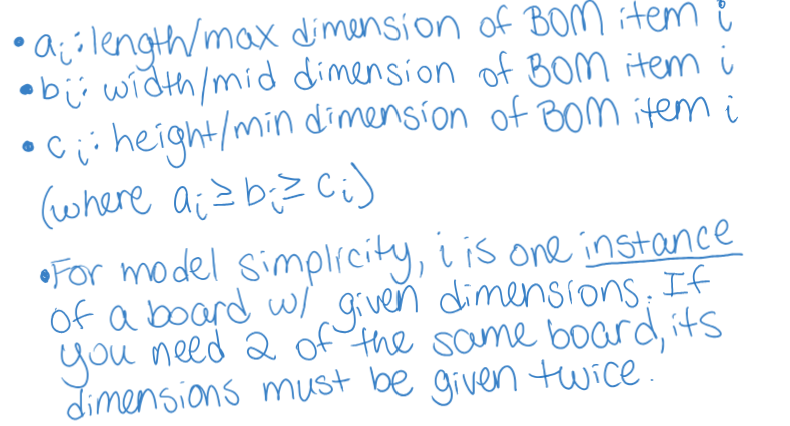 • aᵢ: length/max dimension of BOM item i
• bᵢ: width/mid dimension of BOM item i
• cᵢ: height/min dimension of BOM item i
(where aᵢ ≥ bᵢ ≥ cᵢ)
• For model simplicity, i is one instance
of a board w/ given dimensions. If
you need 2 of the same board, its
dimensions must be given twice.